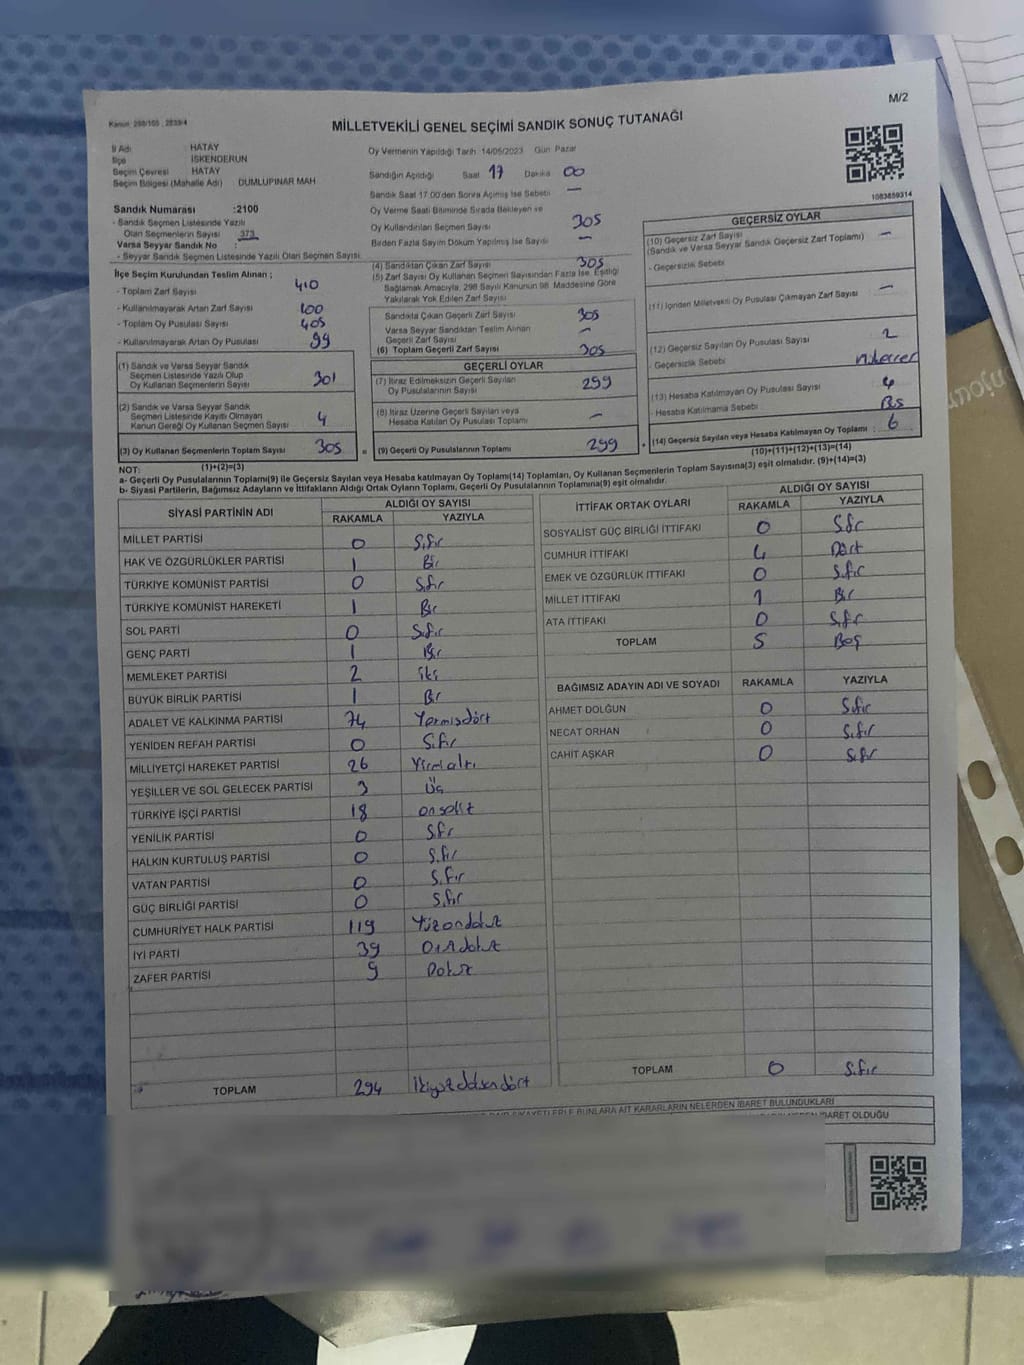 M/2
Kanun: 298/105 , 2839/4
MİLLETVEKİLİ GENEL SEÇİMİ SANDIK SONUÇ TUTANAĞI
İl Adı : HATAY
İlçe : İSKENDERUN
Seçim Çevresi : HATAY
Seçim Bölgesi (Mahalle Adı) : DUMLUPINAR MAH
Oy Vermenin Yapıldığı Tarih 14/05/2023 Gün Pazar
Sandığın Açıldığı Saat 17 Dakika 00
Sandık Saat 17:00'den Sonra Açılmış İse Sebebi —
1083859314
Sandık Numarası :2100
- Sandık Seçmen Listesinde Yazılı
Olan Seçmenlerin Sayısı 373
Varsa Seyyar Sandık No :
- Seyyar Sandık Seçmen Listesinde Yazılı Olan Seçmen Sayısı:
Oy Verme Saati Bitiminde Sırada Bekleyen ve
Oy Kullandırılan Seçmen Sayısı 305
Birden Fazla Sayım Döküm Yapılmış İse Sayısı —
İlçe Seçim Kurulundan Teslim Alınan ;
- Toplam Zarf Sayısı 410
- Kullanılmayarak Artan Zarf Sayısı 100
- Toplam Oy Pusulası Sayısı 405
- Kullanılmayarak Artan Oy Pusulası 99
(1) Sandık ve Varsa Seyyar Sandık
Seçmen Listesinde Yazılı Olup
Oy Kullanan Seçmenlerin Sayısı 301
(2) Sandık ve Varsa Seyyar Sandık
Seçmen Listesinde Kayıtlı Olmayan
Kanun Gereği Oy Kullanan Seçmen Sayısı 4
(3) Oy Kullanan Seçmenlerin Toplam Sayısı 305 =
(1)+(2)=(3)
(4) Sandıktan Çıkan Zarf Sayısı 305
(5) Zarf Sayısı Oy Kullanan Seçmen Sayısından Fazla İse, Eşitliği
Sağlamak Amacıyla, 298 Sayılı Kanunun 98. Maddesine Göre
Yakılarak Yok Edilen Zarf Sayısı
Sandıkta Çıkan Geçerli Zarf Sayısı 305
Varsa Seyyar Sandıktan Teslim Alınan
Geçerli Zarf Sayısı —
(6) Toplam Geçerli Zarf Sayısı 305
GEÇERLİ OYLAR
(7) İtiraz Edilmeksizin Geçerli Sayılan
Oy Pusulalarının Sayısı 299
(8) İtiraz Üzerine Geçerli Sayılan veya
Hesaba Katılan Oy Pusulası Toplamı —
(9) Geçerli Oy Pusulalarının Toplamı 299 +
GEÇERSİZ OYLAR
(10) Geçersiz Zarf Sayısı —
(Sandık ve Varsa Seyyar Sandık Geçersiz Zarf Toplamı)
- Geçersizlik Sebebi :
(11) İçinden Milletvekili Oy Pusulası Çıkmayan Zarf Sayısı —
(12) Geçersiz Sayılan Oy Pusulası Sayısı 2
- Geçersizlik Sebebi :
(13) Hesaba Katılmayan Oy Pusulası Sayısı 4
- Hesaba Katılmama Sebebi :
(14) Geçersiz Sayılan veya Hesaba Katılmayan Oy Toplamı : 6
(10)+(11)+(12)+(13)=(14)
NOT:
a- Geçerli Oy Pusulalarının Toplamı(9) ile Geçersiz Sayılan veya Hesaba katılmayan Oy Toplamı(14) Toplamları, Oy Kullanan Seçmenlerin Toplam Sayısına(3) eşit olmalıdır. (9)+(14)=(3)
b- Siyasi Partilerin, Bağımsız Adayların ve İttifakların Aldığı Ortak Oyların Toplamı, Geçerli Oy Pusulalarının Toplamına(9) eşit olmalıdır.
SİYASİ PARTİNİN ADI ALDIĞI OY SAYISI
RAKAMLA YAZIYLA
MİLLET PARTİSİ 0 Sıfır
HAK VE ÖZGÜRLÜKLER PARTİSİ 1 Bir
TÜRKİYE KOMÜNİST PARTİSİ 0 Sıfır
TÜRKİYE KOMÜNİST HAREKETİ 1 Bir
SOL PARTİ 0 Sıfır
GENÇ PARTİ 1 Bir
MEMLEKET PARTİSİ 2 iki
BÜYÜK BİRLİK PARTİSİ 1 Bir
ADALET VE KALKINMA PARTİSİ 74 Yetmişdört
YENİDEN REFAH PARTİSİ 0 Sıfır
MİLLİYETÇİ HAREKET PARTİSİ 26 Yirmialtı
YEŞİLLER VE SOL GELECEK PARTİSİ 3 Üç
TÜRKİYE İŞÇİ PARTİSİ 18 onsekiz
YENİLİK PARTİSİ 0 Sıfır
HALKIN KURTULUŞ PARTİSİ 0 Sıfır
VATAN PARTİSİ 0 Sıfır
GÜÇ BİRLİĞİ PARTİSİ 0 Sıfır
CUMHURİYET HALK PARTİSİ 119 Yüzondokuz
İYİ PARTİ 39 Otuzdokuz
ZAFER PARTİSİ 9 Dokuz
TOPLAM 294 İkiyüzdoksandört
İTTİFAK ORTAK OYLARI ALDIĞI OY SAYISI
RAKAMLA YAZIYLA
SOSYALİST GÜÇ BİRLİĞİ İTTİFAKI 0 Sıfır
CUMHUR İTTİFAKI 4 Dört
EMEK VE ÖZGÜRLÜK İTTİFAKI 0 Sıfır
MİLLET İTTİFAKI 1 Bir
ATA İTTİFAKI 0 Sıfır
TOPLAM 5 Beş
BAĞIMSIZ ADAYIN ADI VE SOYADI RAKAMLA YAZIYLA
AHMET DOLĞUN 0 Sıfır
NECAT ORHAN 0 Sıfır
CAHİT AŞKAR 0 Sıfır
TOPLAM 0 Sıfır
KARARLARIN NELERDEN İBARET BULUNDUKLARI
İBARET OLDUĞU